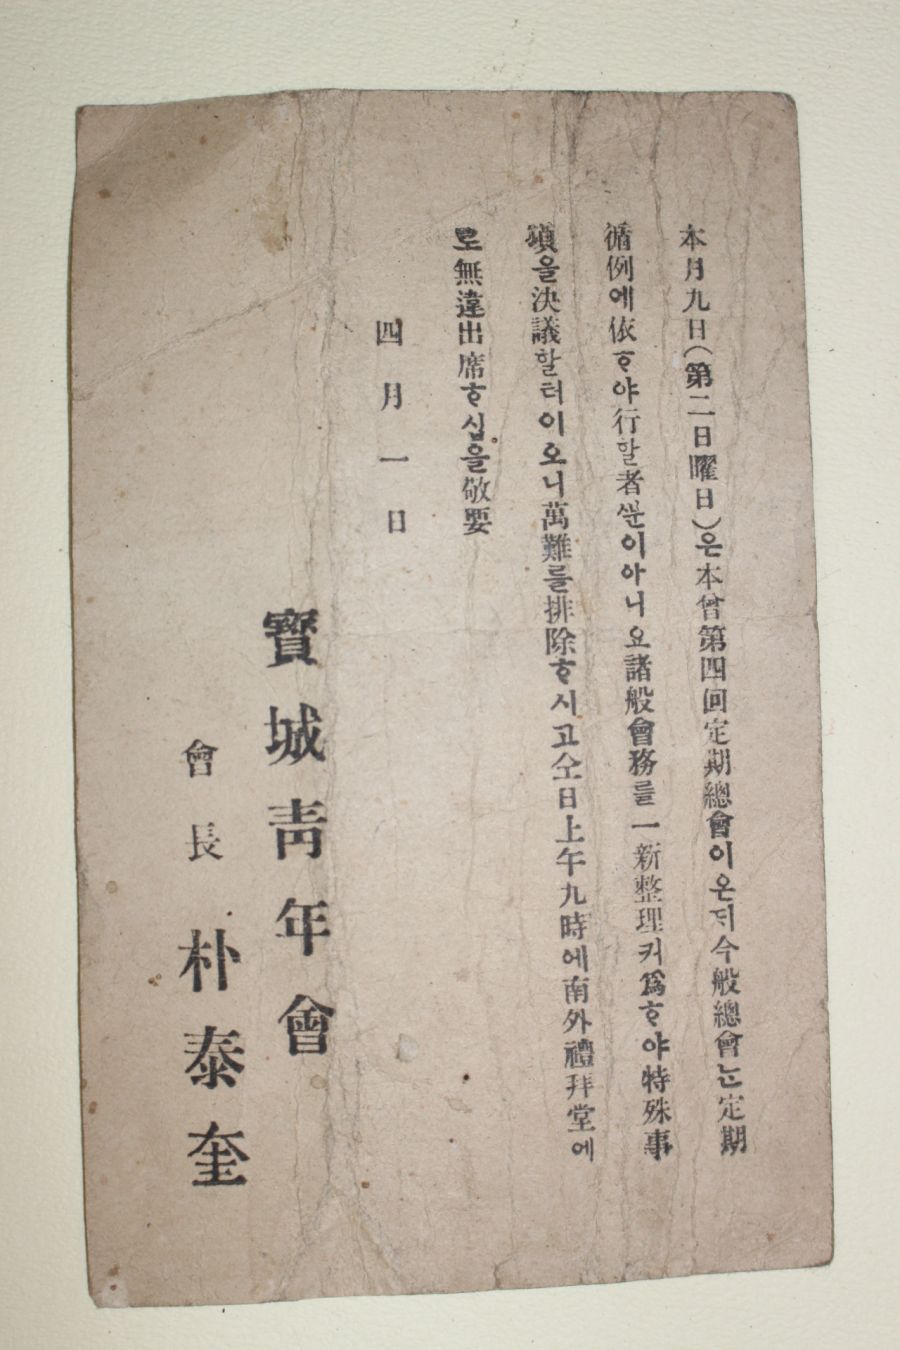 本月九日(第二日曜日)은本會第四回定期總會이온되今般總會는定期
循例에依ᄒᆞ야行할者ᄲᅮᆫ이아니오諸般會務를一新整理커爲ᄒᆞ야特殊事
項을決議할터이오니萬難를排除ᄒᆞ시고仝日上午九時에南外禮拜堂에
로無違出席ᄒᆞ심을敬要
四月一日
寶城靑年會
會長 朴泰奎